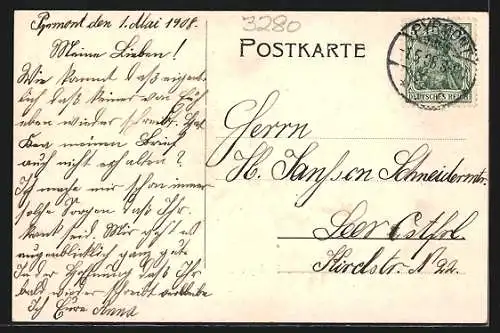 Pyrmont den 1. Mai 1908.
Meine Lieben!
Wie kommt daß eigent-
lich daß keiner von Euch
eben wieder schreibt. Hat
Ihr meinen Brief
auch nicht erhalten?
Ich mache mir schon immer
solche Sorgen daß Ihr
krank seid. Mir geht es
augenblicklich ganz gut.
In der Hoffnung daß Ihr
bald wieder schreibt verbleibe
Ich Eure Anna
3280
POSTKARTE
PYRMONT
DEUTSCHES REICH
Herrn
H. Janssen Schneidermstr.
Leer Ostfrl.
Kirchstr. N 22.